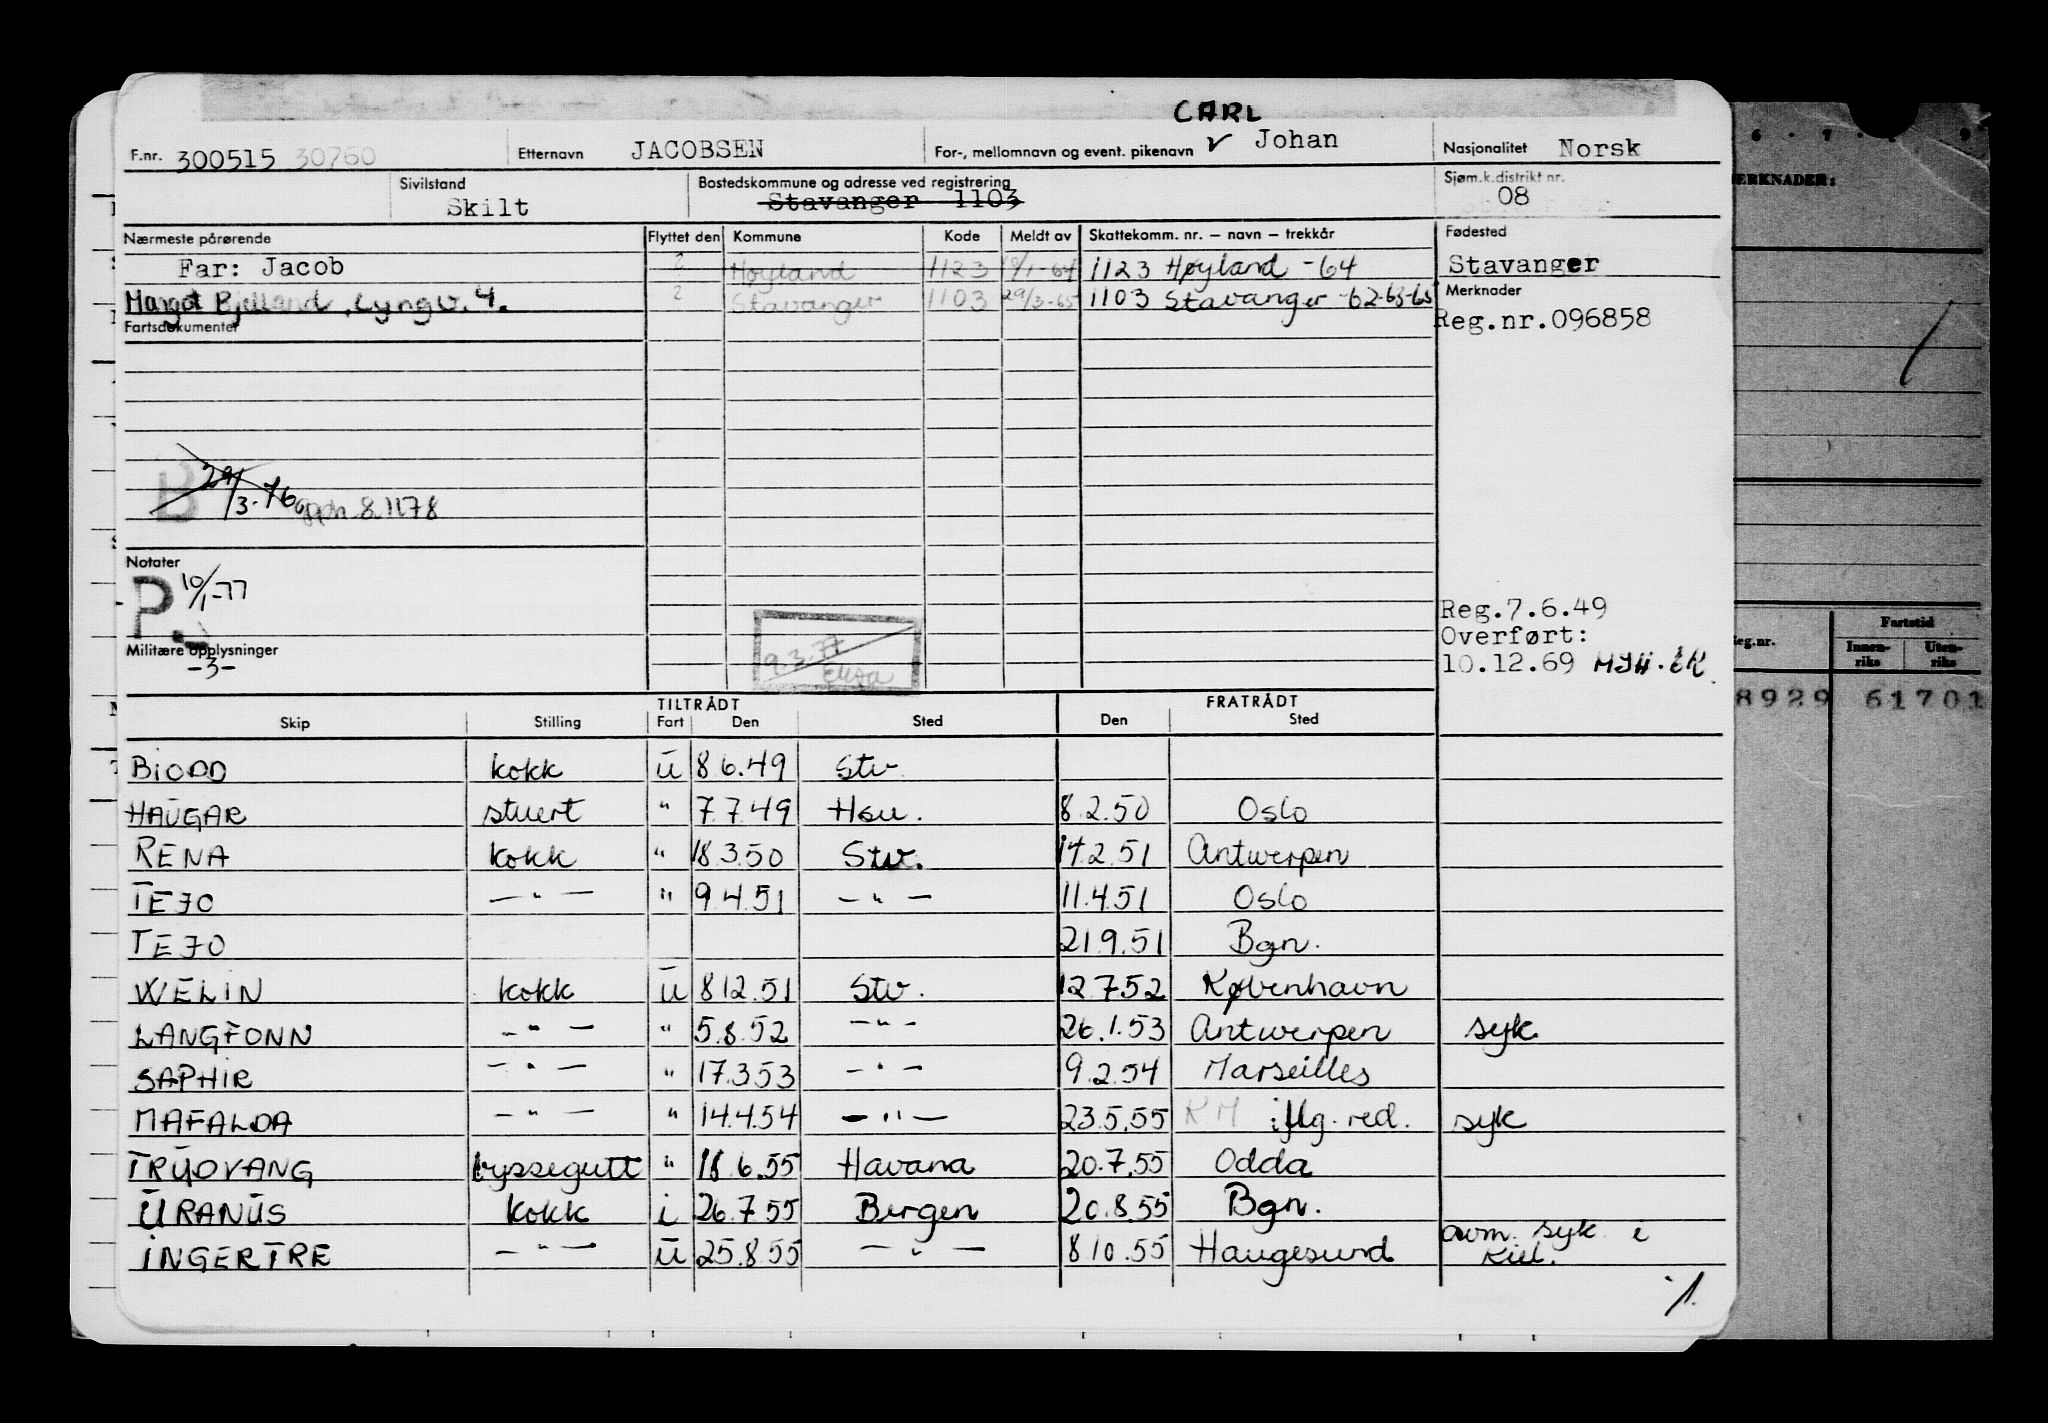 CARL
F.nr. 300515 30760 Etternavn JACOBSEN For-, mellomnavn og event. pikenavn v Johan Nasjonalitet Norsk
Sivilstand Skilt Bostedskommune og adresse ved registrering Stavanger 1103 Sjøm.k.distrikt nr. 08
Nærmeste pårørende Flyttet den Kommune Kode Meldt av Skattekomm. nr. – navn – trekkår Fødested
Far: Jacob 2 Høyland 1123 19/1-64 1123 Høyland -64 Stavanger
Margot Bjelland, Lyngv. 4. 2 Stavanger 1103 29/3-65 1103 Stavanger -62-63-65 Merknader
Fartsdokumenter Reg.nr.096858
B 29/3-76 oph 8.1178
Notater
P. 10/1-77
Reg.7.6.49
Overført:
10.12.69
9.3.77
Militære opplysninger
-3-
TILTRÅDT FRATRÅDT
Skip Stilling Fart Den Sted Den Sted
BIODD kokk u 8 6.49 Stv
HAUGAR stuert " 7.7.49 Hsu. 8.2.50 Oslo
RENA kokk " 18.3.50 Stv. 14.2.51 Antwerpen
TEJO — " — " 9.4.51 — " — 11.4.51 Oslo
TEJO 21.9.51 Bgn.
WELIN kokk u 8 12.51 Stv. 12.7.52 København
LANGFONN — " — " 5.8.52 — " — 26.1.53 Antwerpen syk
SAPHIR — " — " 17.3.53 — " — 9.2.54 Marseilles
MAFALDA — " — " 14.4.54 — " — 23.5.55 KM iflg. red. syk
TRYDVANG byssegutt " 18 6.55 Havana 20.7.55 Odda
URANUS kokk i 26.7.55 Bergen 20.8.55 Bgn.
INGERTRE — " — u 25.8.55 — " — 8 10.55 Haugesund avm. syk i Kiel.
1.
ERKNADER:
eg.nr. Fartstid
Innen-riks Uten-riks
8929 61701